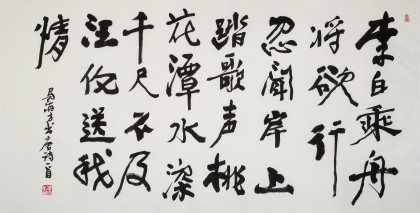 李白乘舟
将欲行
忽闻岸上
踏歌声桃
花潭水深
千尺不及
汪伦送我
情
书唐诗一首